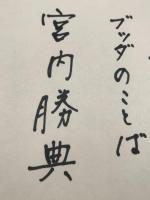 ブッダのことば
宮内勝典